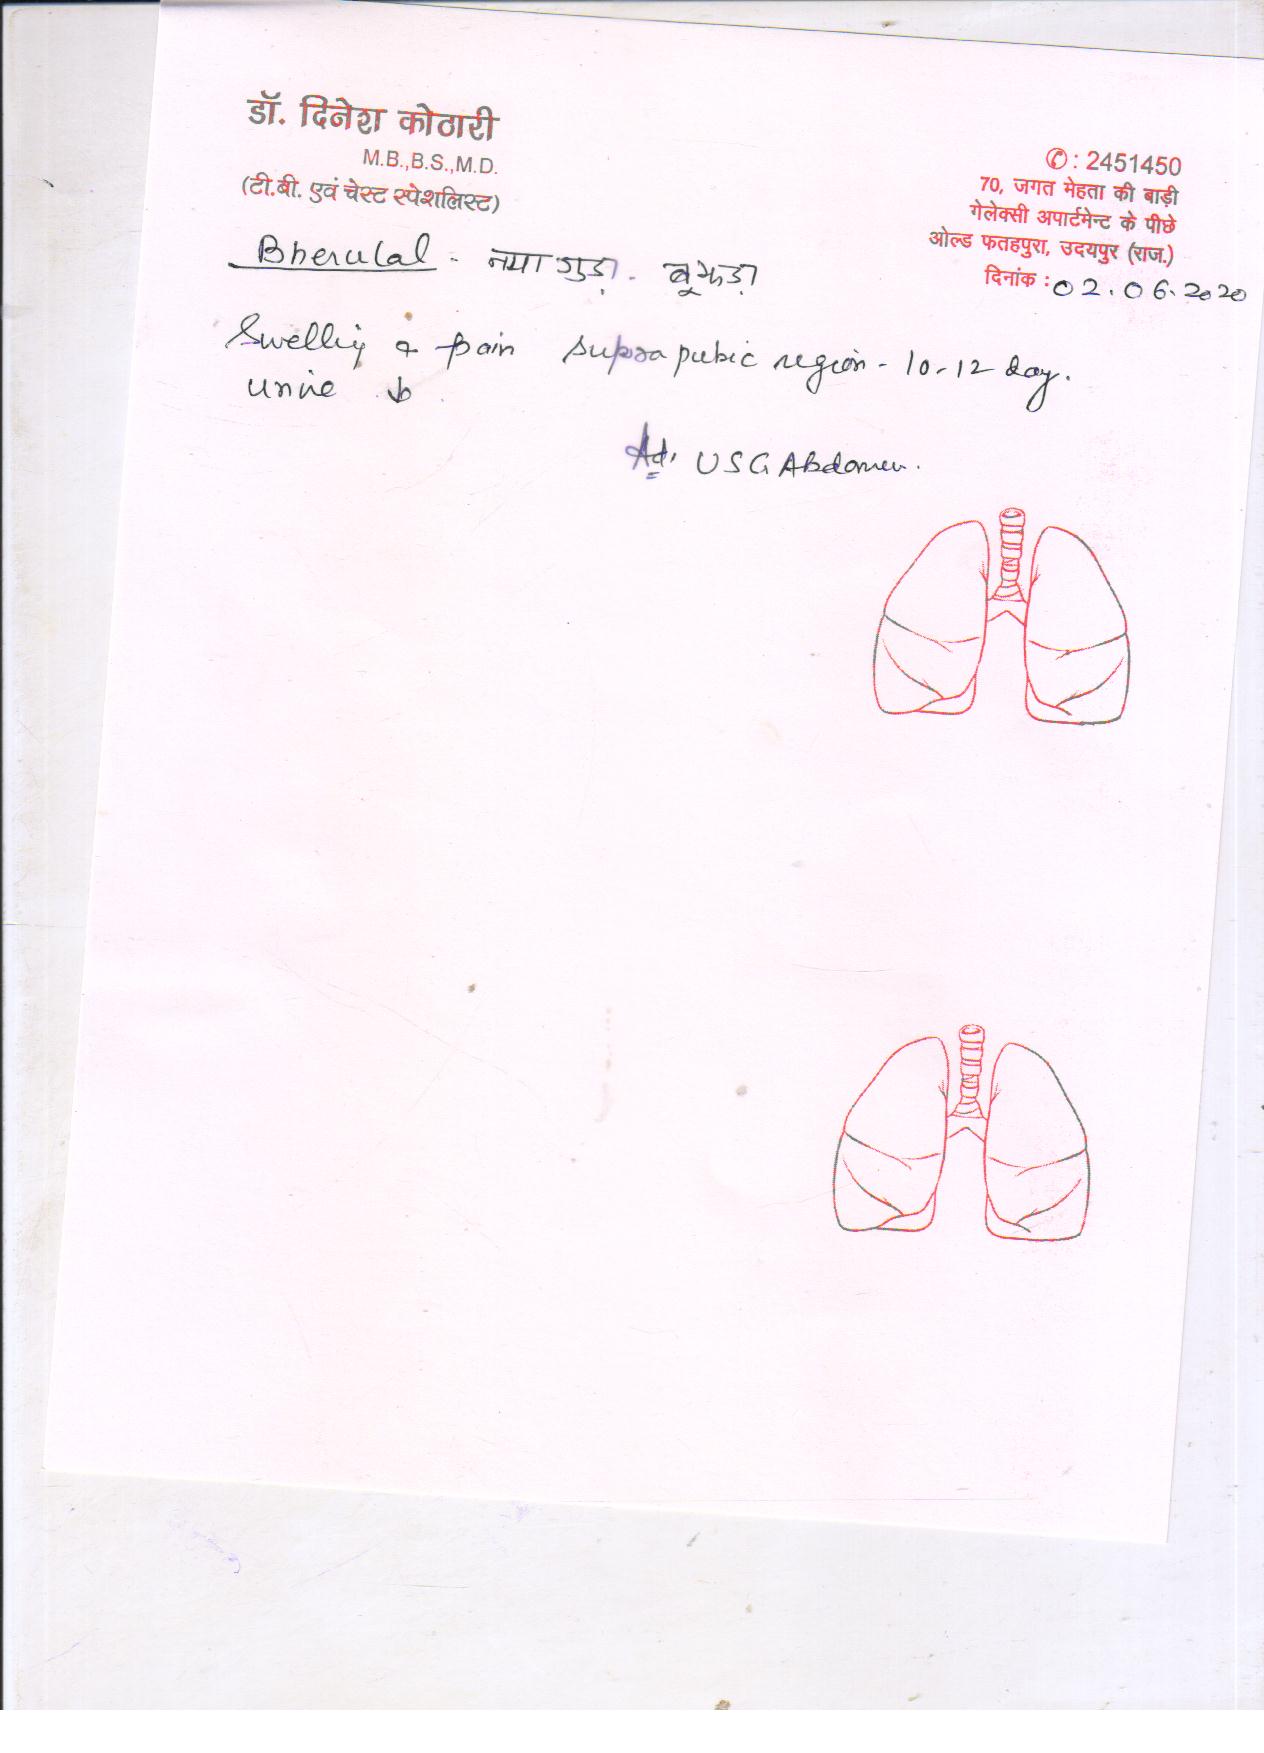 डॉ. दिनेश कोठारी
M.B.,B.S.,M.D.
(टी.बी. एवं चेस्ट स्पेशलिस्ट)
✆ : 2451450
70, जगत मेहता की बाड़ी
गेलेक्सी अपार्टमेन्ट के पीछे
ओल्ड फतहपुरा, उदयपुर (राज.)
दिनांक : 02.06.2020
Bherulal - नया गुड़ा - बूझड़ा
Swelling & pain suprapubic region - 10-12 day.
urine ↓
Ad. USG Abdomen.